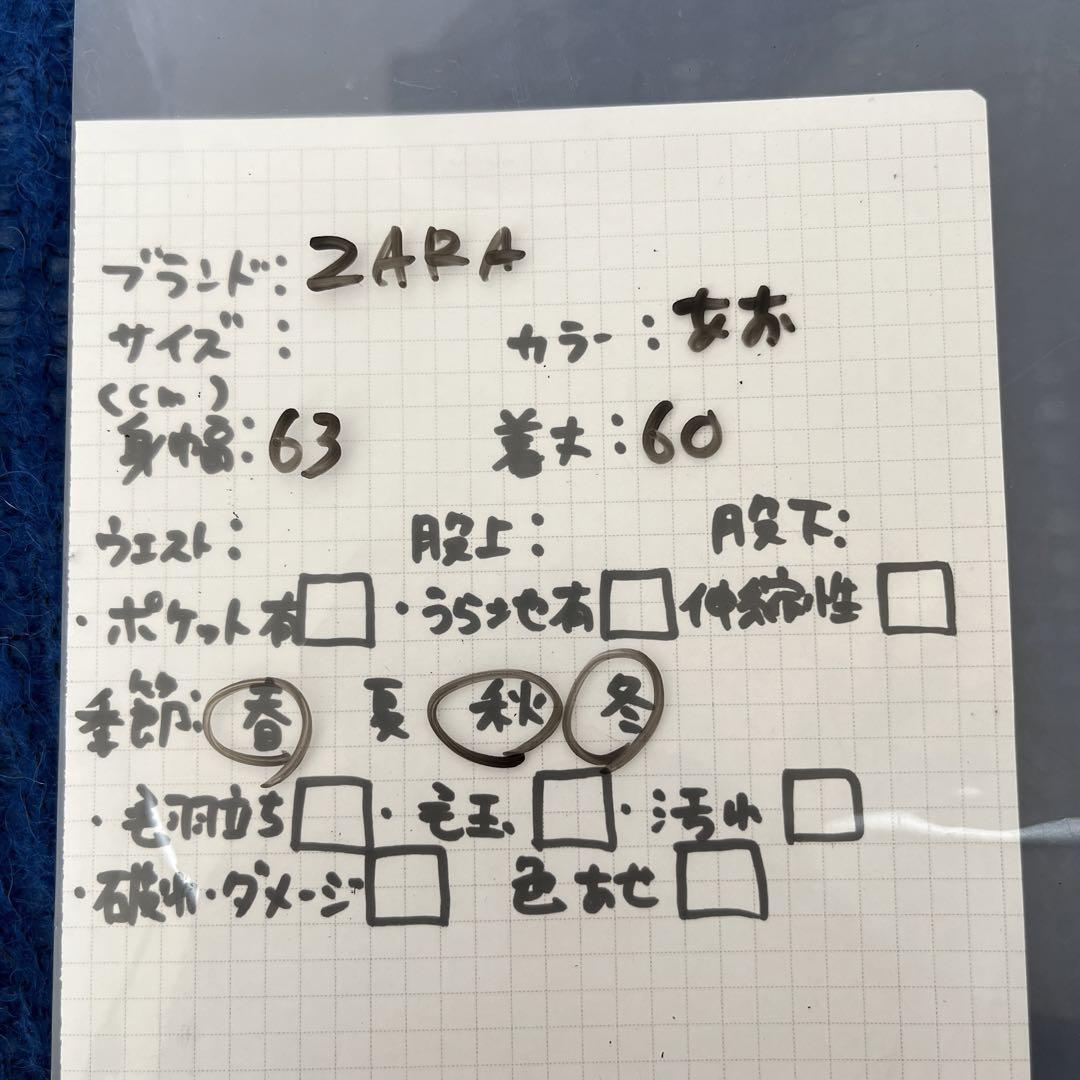 ブランド: ZARA
サイズ : カラー : あお
(cm)
身幅: 63 着丈: 60
ウエスト: 股上: 股下:
・ポケット有□ ・うら地有□ 伸縮性□
季節: 春 夏 秋 冬
・毛羽立ち□・毛玉□・汚れ□
・破れ・ダメージ□ 色あせ□